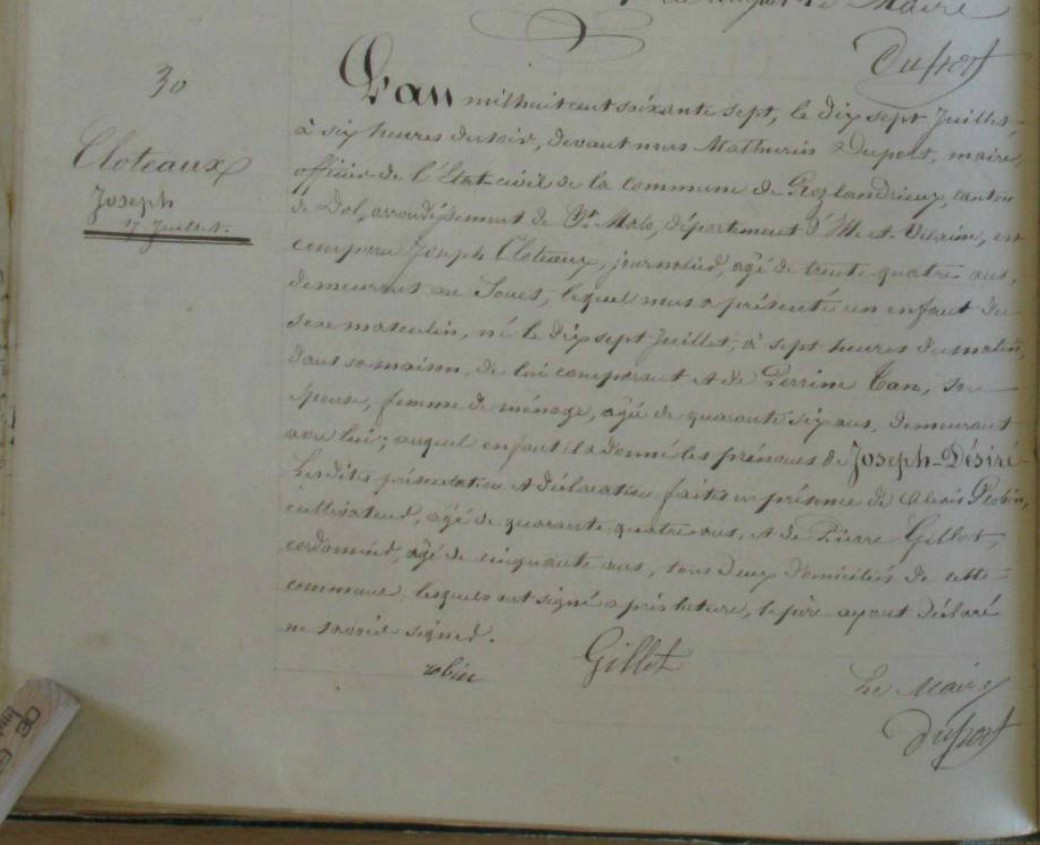 Le Maire
Duport
30
Cloteaux
Joseph
17 Juillet.
L'an mil huit cent soixante sept, le dix sept Juillet,
à six heures du soir, devant nous Mathurin Duport, maire,
officier de l'État-civil de la commune de Roz landrieux, canton
de Dol, arrondissement de St. Malo, département d'Ille et-Vilaine, est
comparu Joseph Cloteaux, journalier, âgé de trente quatre ans,
demeurant au lequel nous a présenté un enfant du
sexe masculin, né le dix sept Juillet, à sept heures du matin,
dans sa maison, de lui comparant et de Perrine Tan, son
épouse, femme de ménage, âgé de quarante six ans, demeurant
avec lui; auquel enfant il a donné les prénoms de Joseph-Désiré
Les dites présentation et déclaration faites en présence de Alexis Robin,
cultivateur, âgé de quarante quatre ans, et de Pierre Gillot,
cordonnier, âgé de cinquante ans, tous deux domiciliés de cette
commune, lesquels ont signé après lecture, le père ayant déclaré
ne savoir signer.
robin
Gillot
Le Maire
Duport
30